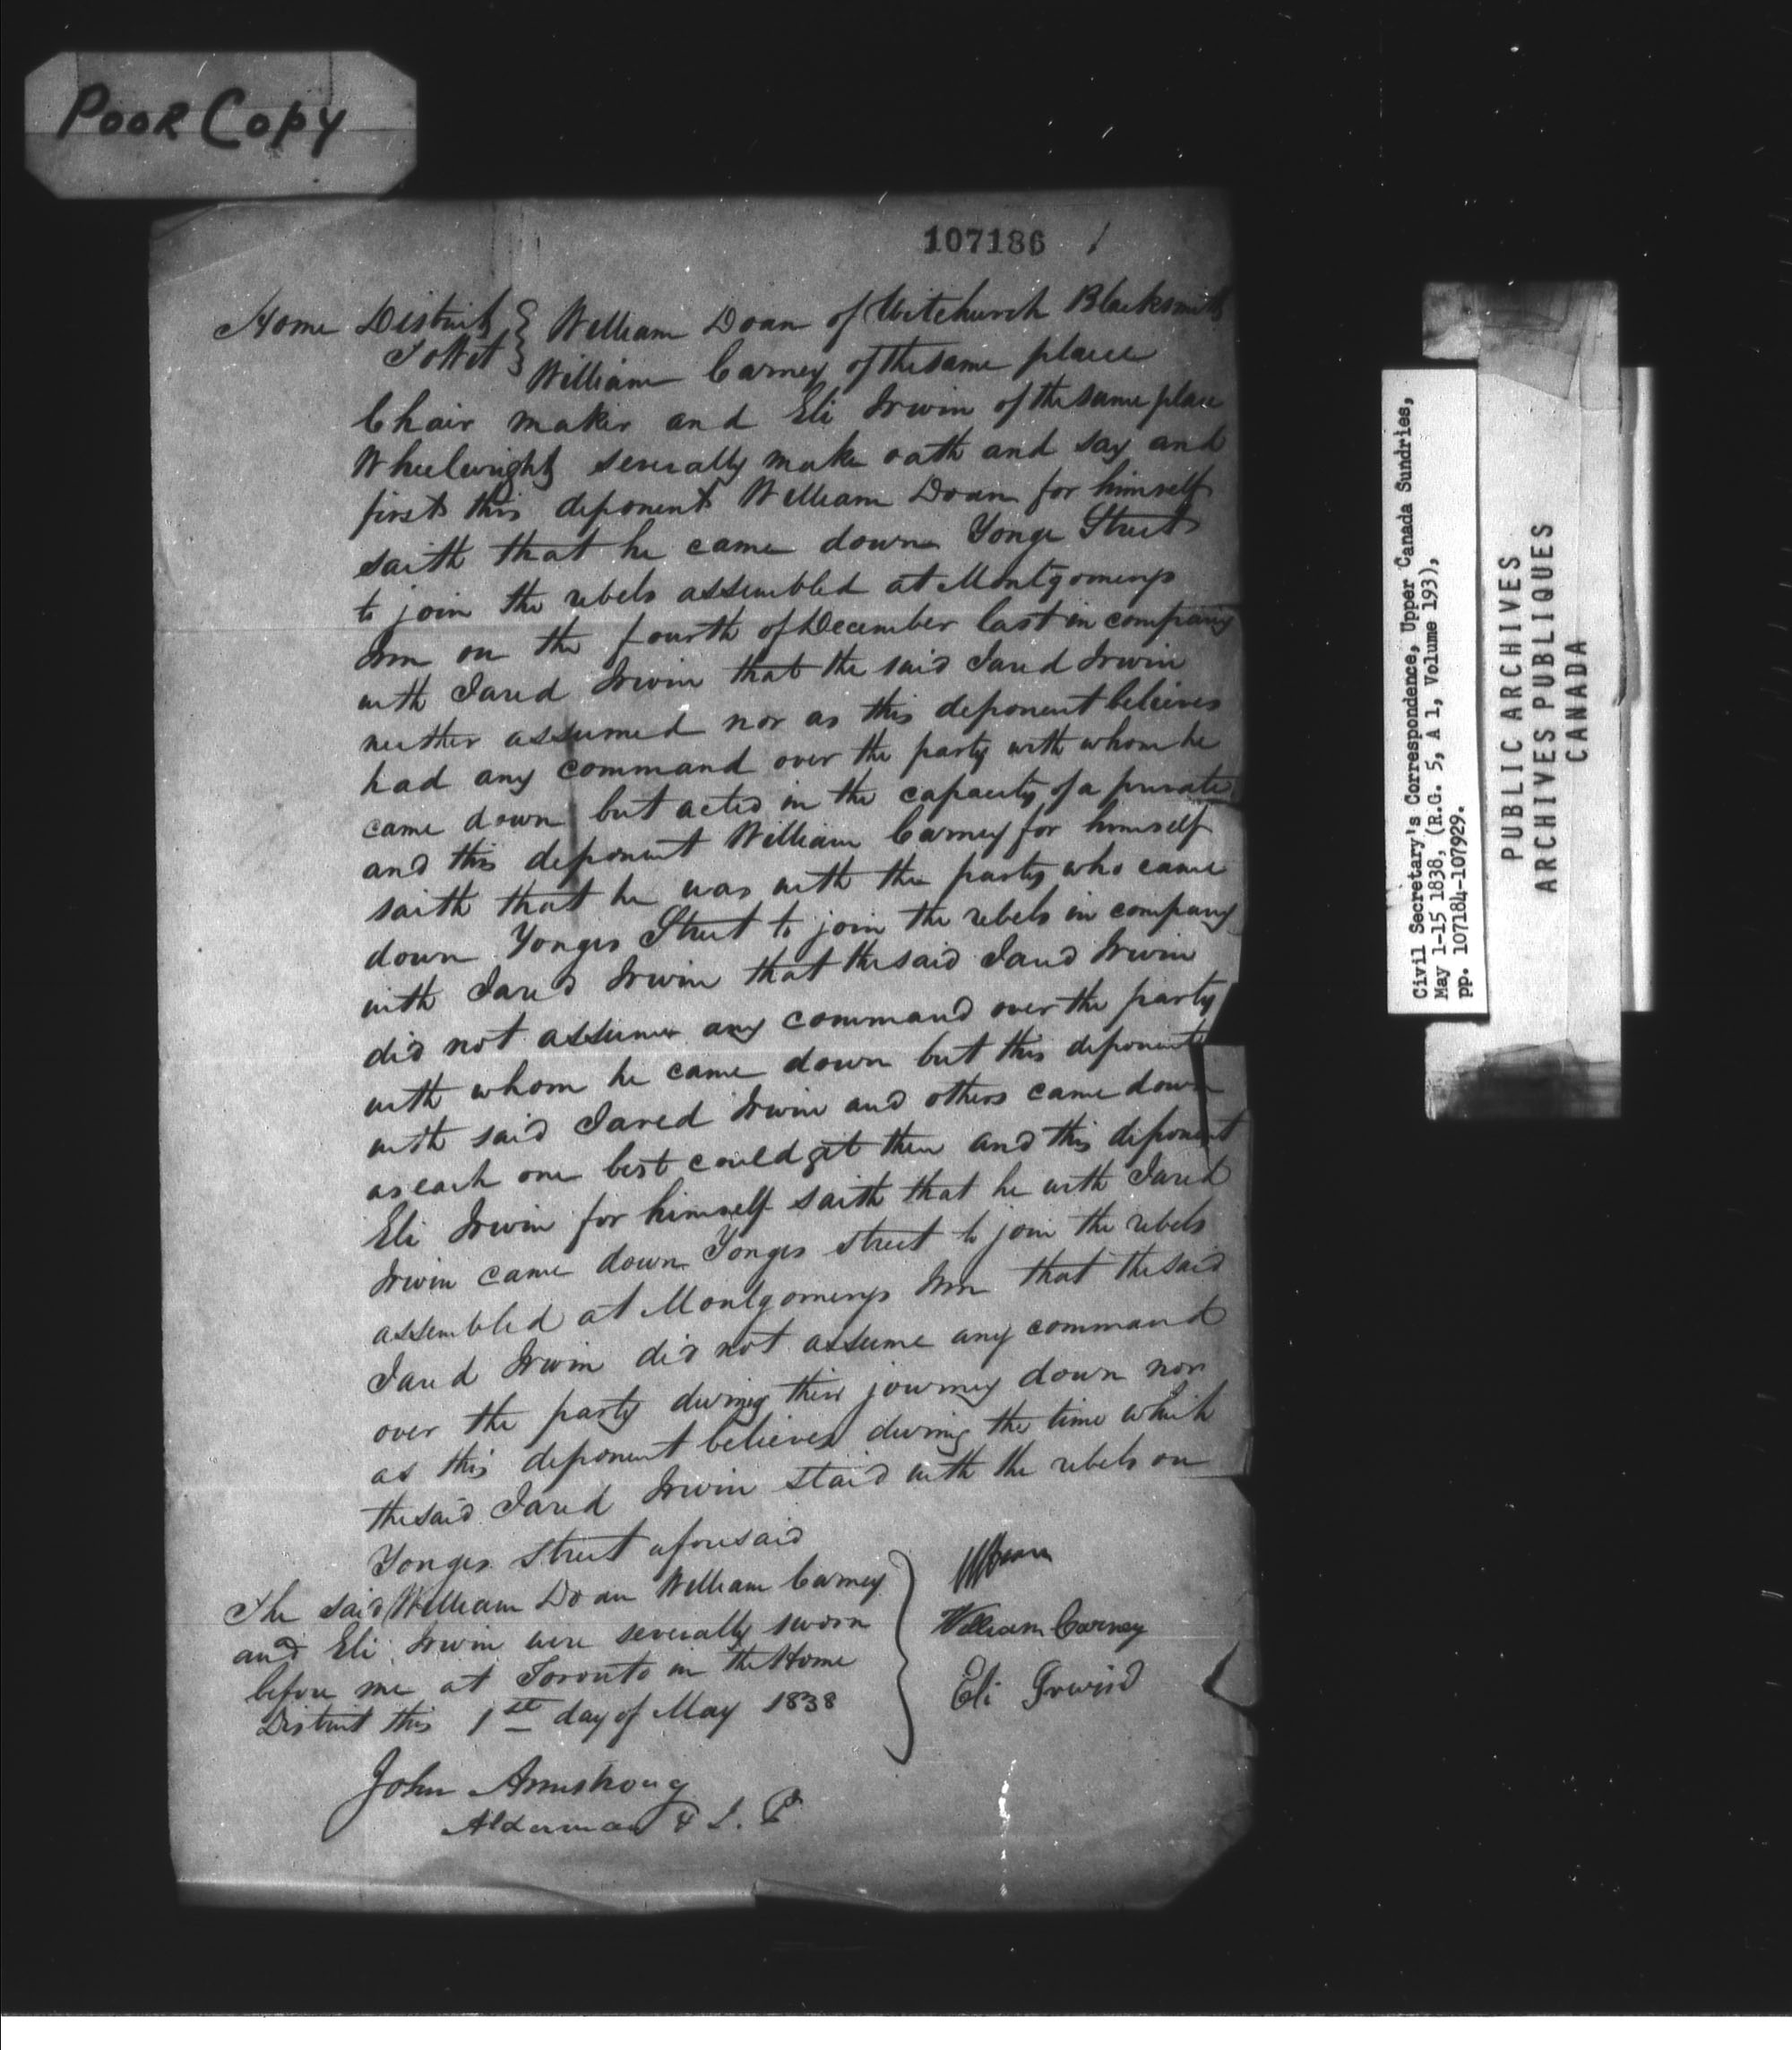 Poor Copy
107186 /
Home District } William Doan of Witchurch Blacksmith
To Wit } William Carney of the same place
Chair maker and Eli Irwin of the same place
Wheelwright severally make oath and say and
first this deponent William Doan for himself
saith that he came down Yonge Street
to join the rebels assembled at Montgomerys
Inn on the fourth of December last in company
with Jared Irwin that the said Jared Irwin
neither assumed nor as this deponent believes
had any command over the party with whom he
came down but acted in the capacity of a private
and this deponent William Carney for himself
saith that he was with the party who came
down Yonges Street to join the rebels in company
with Jared Irwin that the said Jared Irwin
did not assume any command over the party
with whom he came down but this deponent
with said Jared Irwin and others came down
as each one best could get there and this deponent
Eli Irwin for himself saith that he with Jared
Irwin came down Yonges street to join the rebels
assembled at Montgomerys Inn that the said
Jared Irwin did not assume any command
over the party during their journey down nor
as this deponent believes during the time which
the said Jared Irwin staid with the rebels on
Yonges street aforesaid
The said William Doan William Carney
and Eli Irwin were severally sworn
before me at Toronto in the Home
District this 1st day of May 1838
WDoan
William Carney
Eli Irwin
John Armstrong
Alderman & J. P
Civil Secretary's Correspondence, Upper Canada Sundries,
May 1-15 1838, (R.G. 5, A 1, Volume 193),
pp. 107184-107929.
PUBLIC ARCHIVES
ARCHIVES PUBLIQUES
CANADA